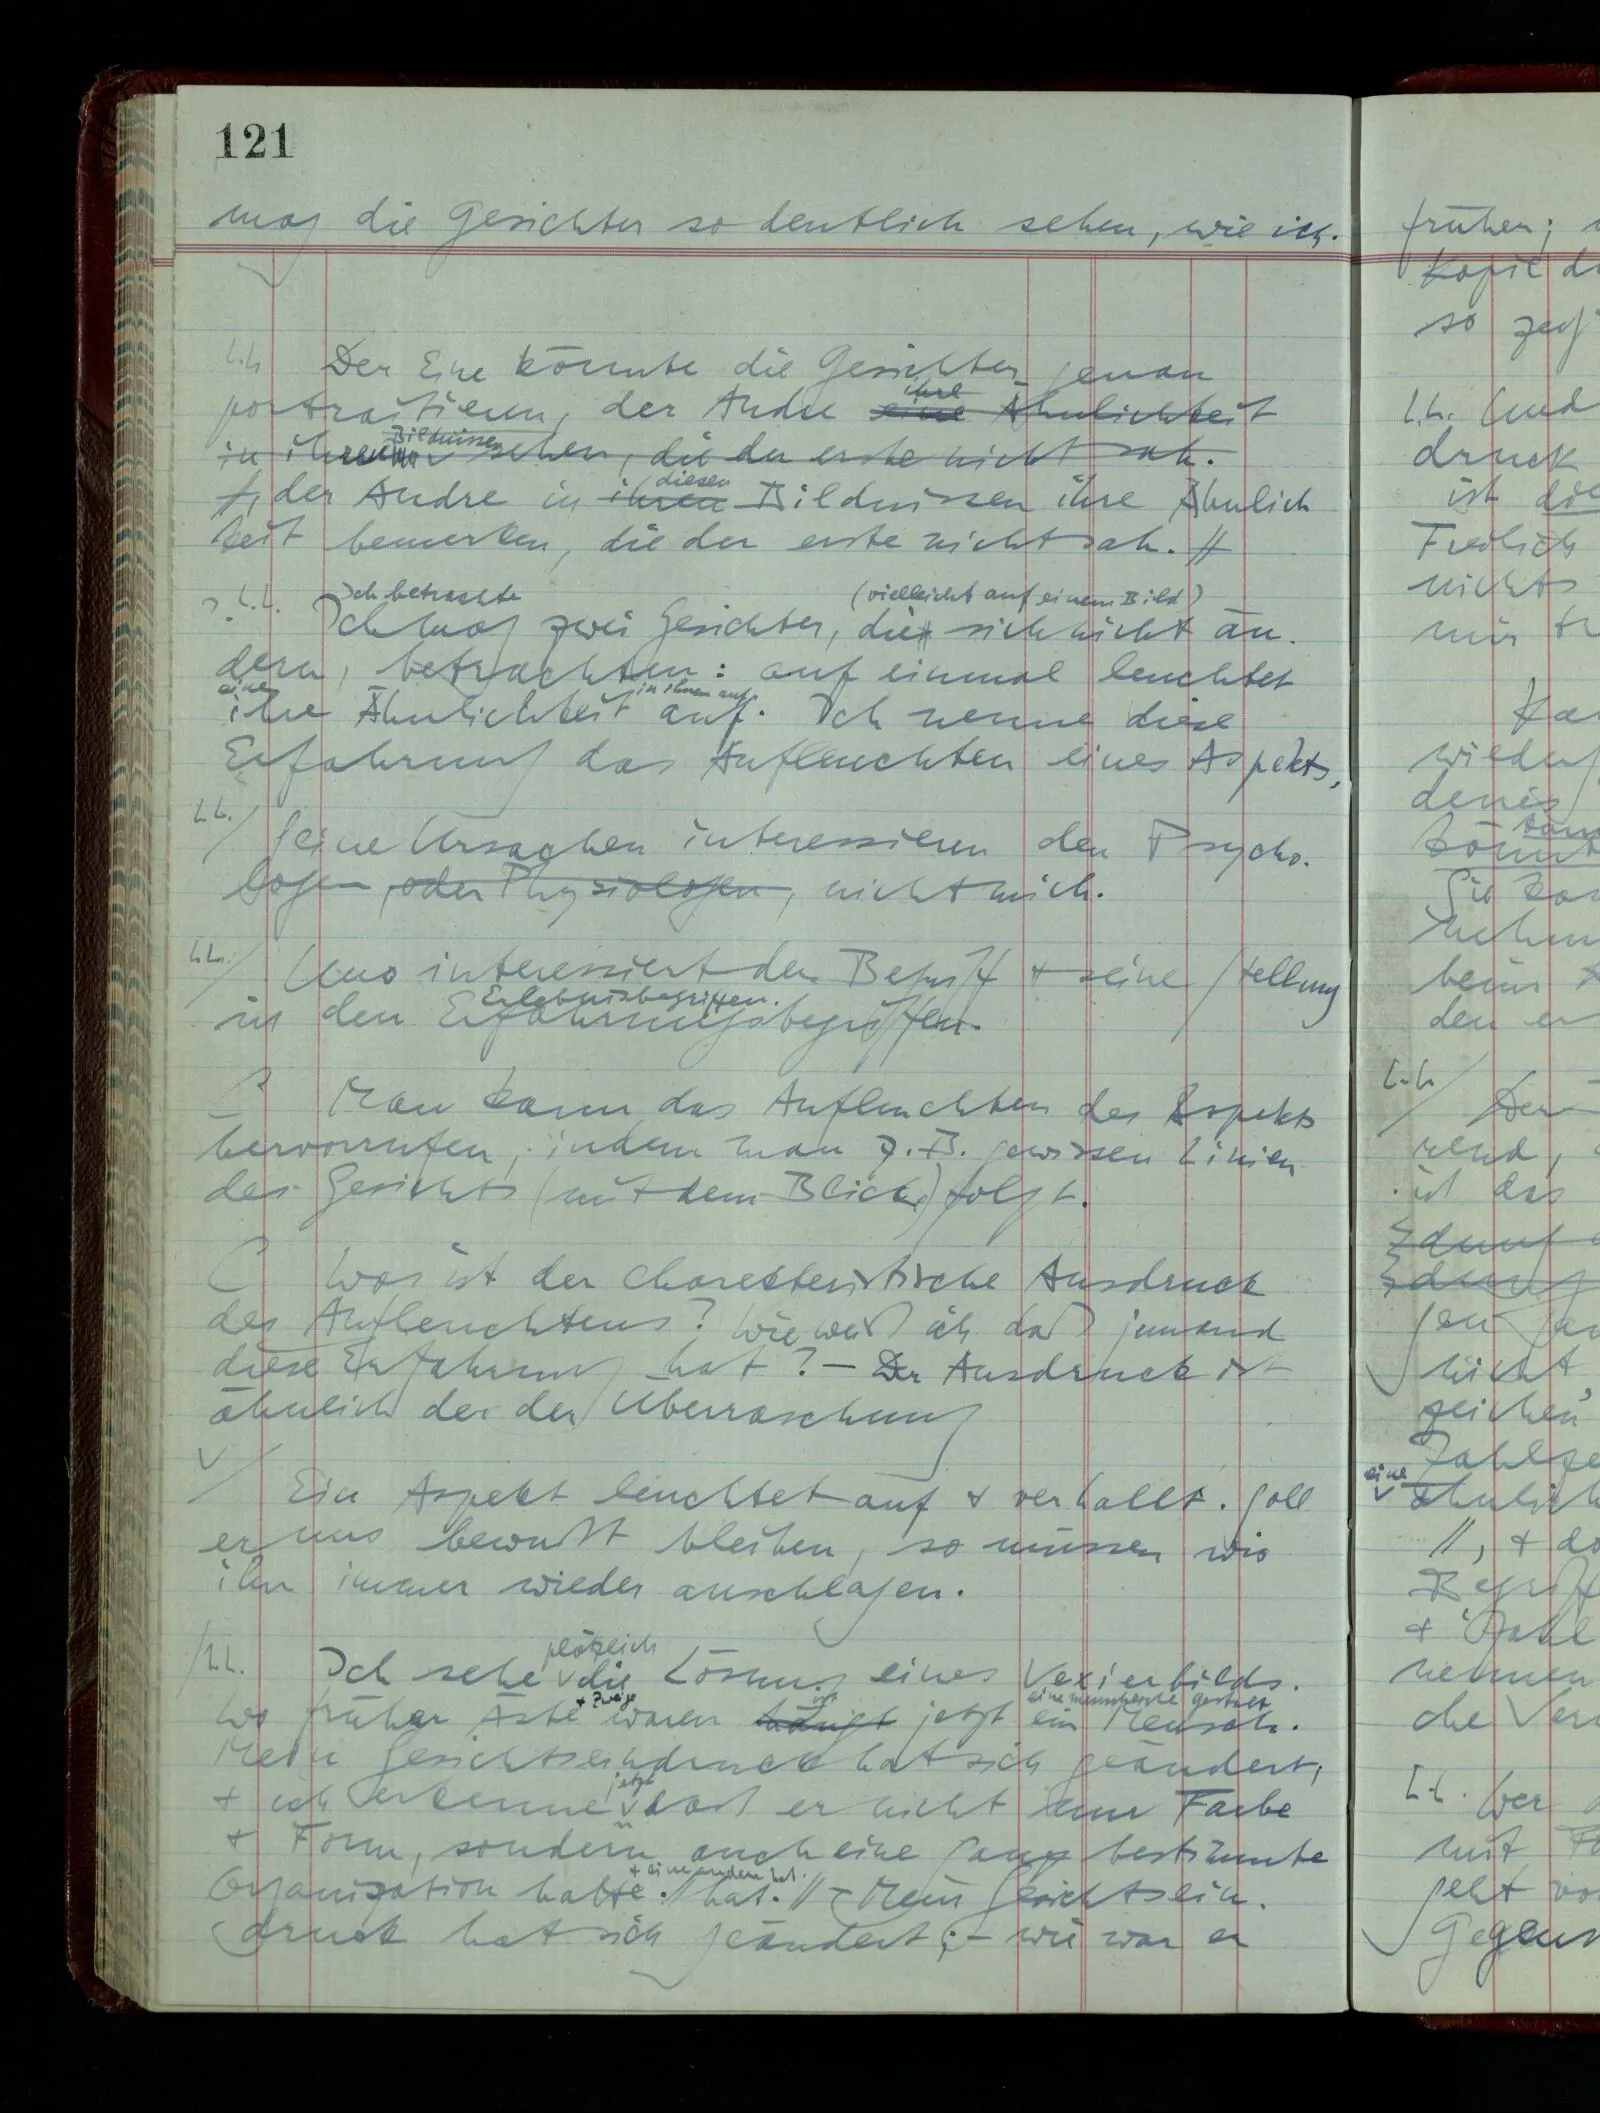 121
mag die Gesichter so deutlich sehen, wie ich.
Der Eine könnte die Gesichter genau
ihre
portraitieren, der Andre eine Ähnlichkeit
Bildnissen
in ihren sehen, die der erste nicht sah.
diesen
//, der Andre in ihren Bildnissen ihre Ähnlich
keit bemerken, die der erste nicht sah. //
Ich betrachte (vielleicht auf einem Bild)
? Ich mag zwei Gesichter, die sich nicht än-
dern, betrachten: auf einmal leuchtet
eine in ihnen auf.
ihre Ähnlichkeit auf. Ich nenne diese
Erfahrung das Aufleuchten eines Aspekts.
/ Seine Ursachen interessieren den Psycho-
logen, oder Physiologen, nicht mich.
/ Uns interessiert der Begriff + seine Stellung
Erlebnisbegriffen.
in den Erfahrungsbegriffen.
Man kann das Aufleuchten des Aspekts
hervorrufen, indem man z.B. gewissen Linien
des Gesichts (mit dem Blick) folgt.
Was ist der charakteristische Ausdruck
des Aufleuchtens? Wie weiß ich daß jemand
diese Erfahrung hat? – Der Ausdruck ist
ähnlich der der Überraschung
/ Ein Aspekt leuchtet auf + verhallt. Soll
er uns bewußt bleiben, so müssen wir
ihn immer wieder anschlagen.
plötzlich
/ Ich sehe die Lösung eines Vexierbilds.
+ Zweige ist eine menschliche Gestalt
Wo früher Äste waren hängt jetzt ein Mensch.
Mein Gesichtseindruck hat sich geändert,
jetzt
+ ich erkenne daß er nicht nur Farbe
+ Form, sondern auch eine ganz bestimmte
+ eine andere hat.
Organization hatte. // hat. // – Mein Gesichtsein-
druck hat sich geändert; – wie war er
früher;
Kopie
so
Und
druck
ist
Freilich
nichts
mir
wieder
Sie
beim
den er
Der
rend,
ist das
nicht
zeichen
eine
ähnlich
//, +
Begriff
nennen
che
Wer
mit
geht
Gegens